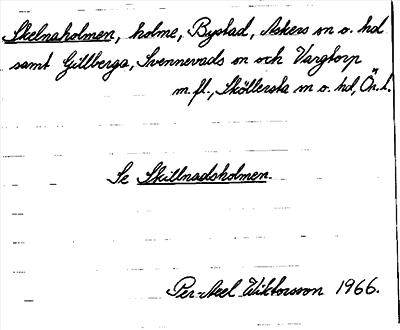 Skelnaholmen, holme, Bystad, Askers sn o. hd
samt Gillberga, Svennevads sn och Vargtorp
m.fl., Sköllersta sn o. hd, Ör. l.
Se Skillnadsholmen.
Per-Axel Wiktorsson 1966.